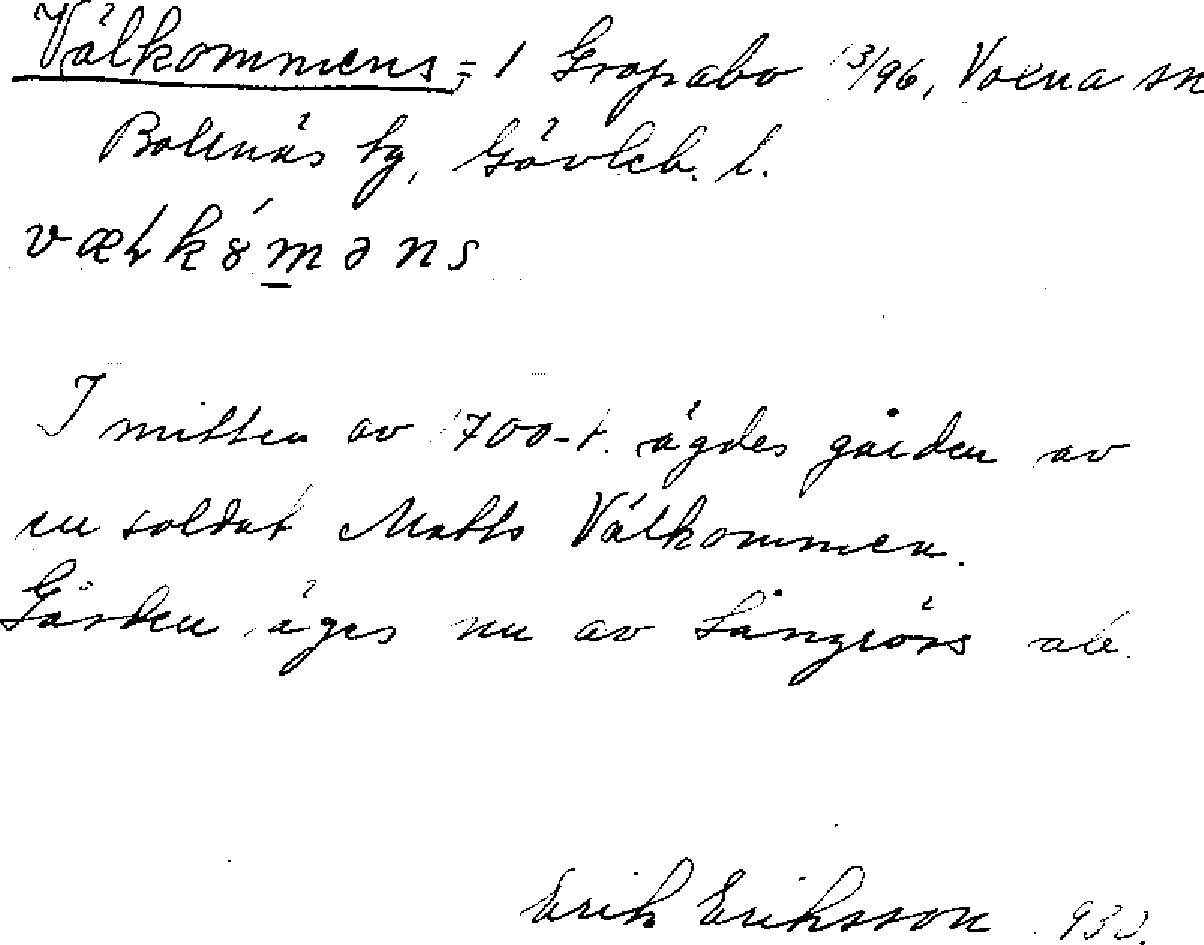 Välkommens, = 1 Gropabo 13/96, Voxna sn
Bollnäs tg, Gävleb. l.
I mitten av 1700-t. ägdes gården av
en soldat Matts Välkommen.
Gården äges nu av Långrörs ab.
Erik Eriksson 1930.